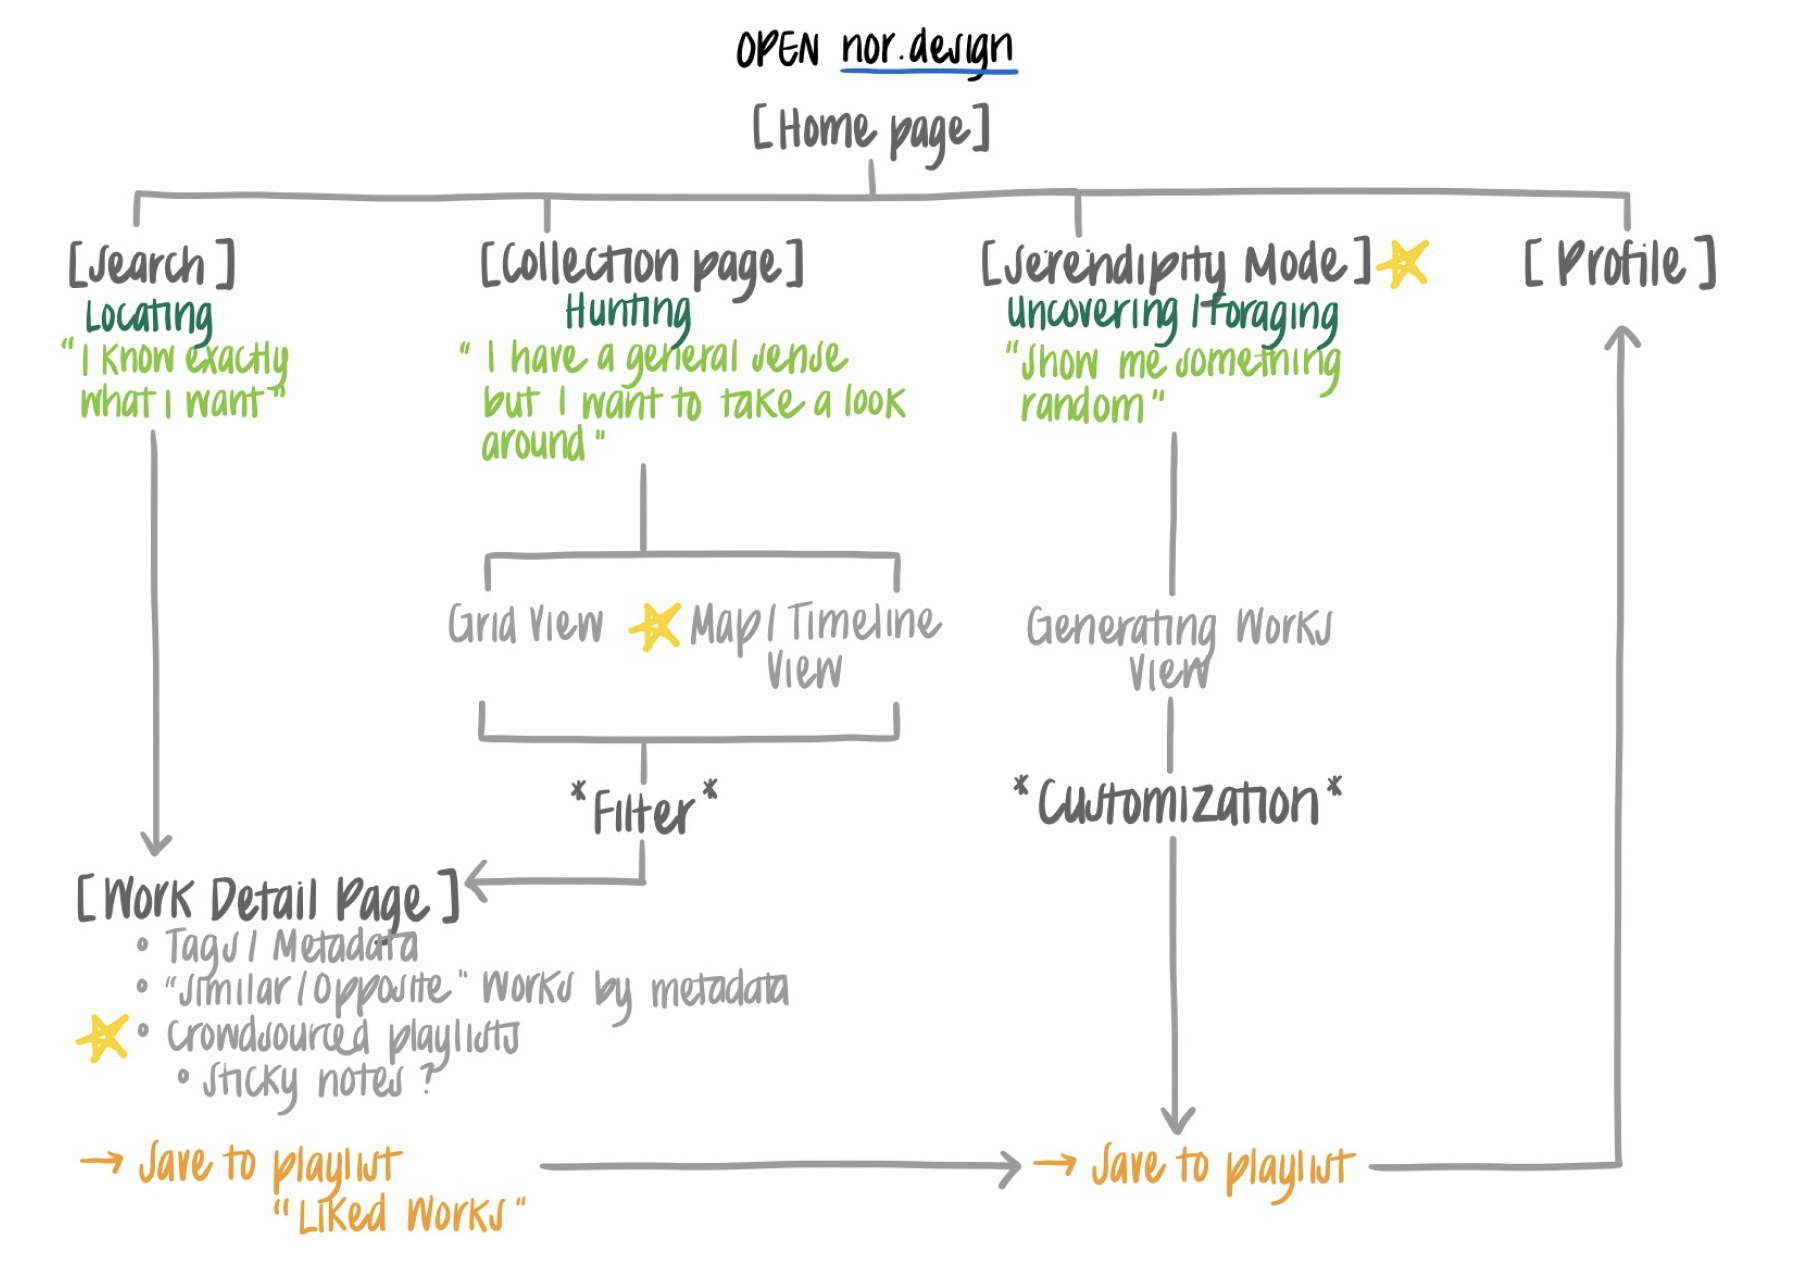 OPEN nor.design
[Home page]
[Search]
Locating
"I know exactly
what I want"
[Collection page]
Hunting
"I have a general sense
but I want to take a look
around"
[Serendipity Mode]
Uncovering/foraging
"Show me something
random"
[Profile]
Grid View
Map/Timeline
View
Generating Works
View
*Filter*
*Customization*
[Work Detail Page]
Tags/Metadata
"Similar/Opposite" works by metadata
Crowdsourced playlists
Sticky notes?
→ Save to playlist
"Liked Works"
→ Save to playlist